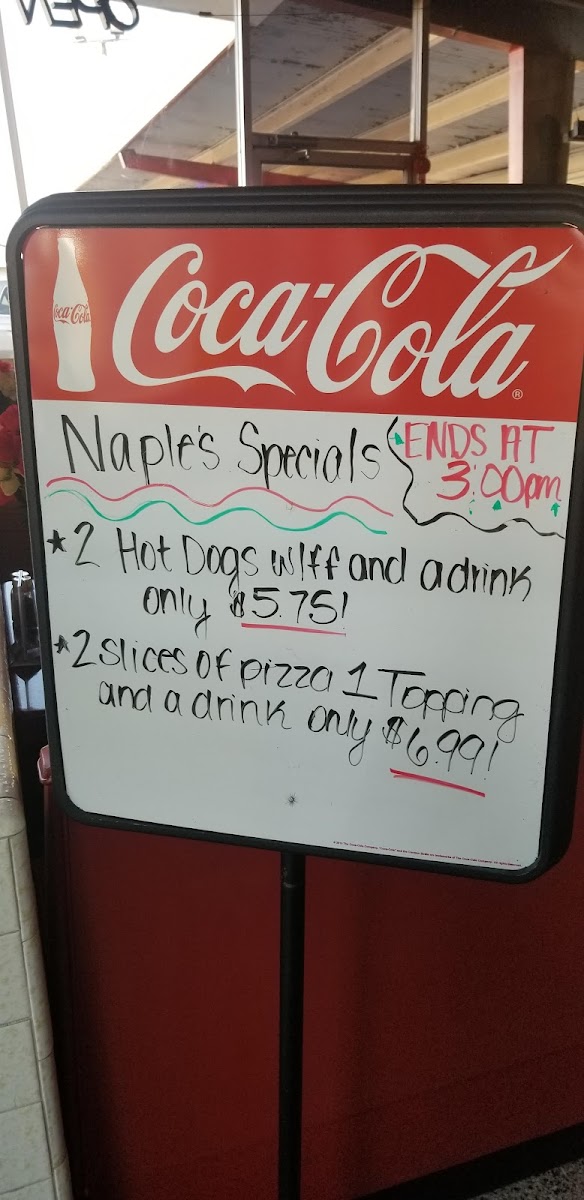 OPEN
Coca-Cola
Coca-Cola®
Naple's Specials
ENDS AT
3:00pm
★2 Hot Dogs w/ff and a drink
only $5.75!
★2 slices of pizza 1 Topping
and a drink only $6.99!